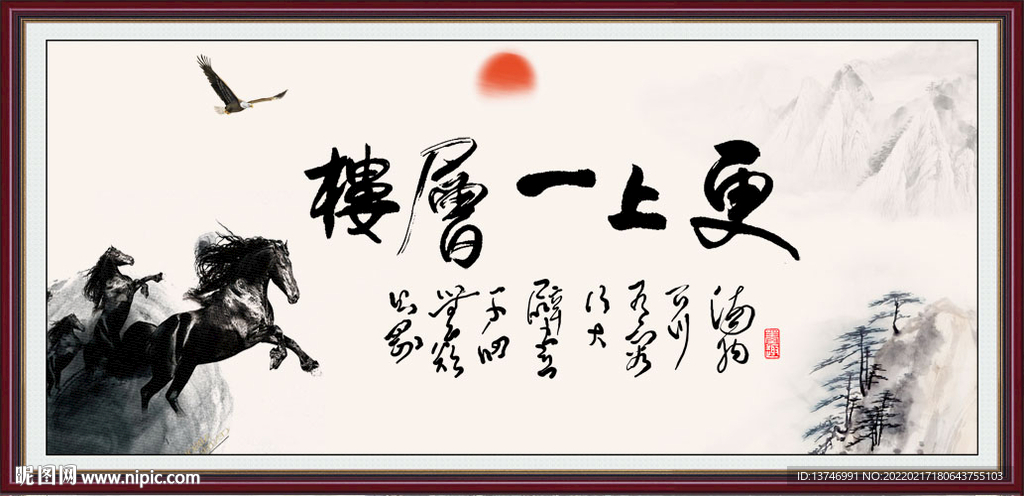 更上一層樓
海納
百川
有容
乃大
壁立
千仞
無欲
則剛
昵图网 www.nipic.com
ID:13746991 NO:20220217180643755103